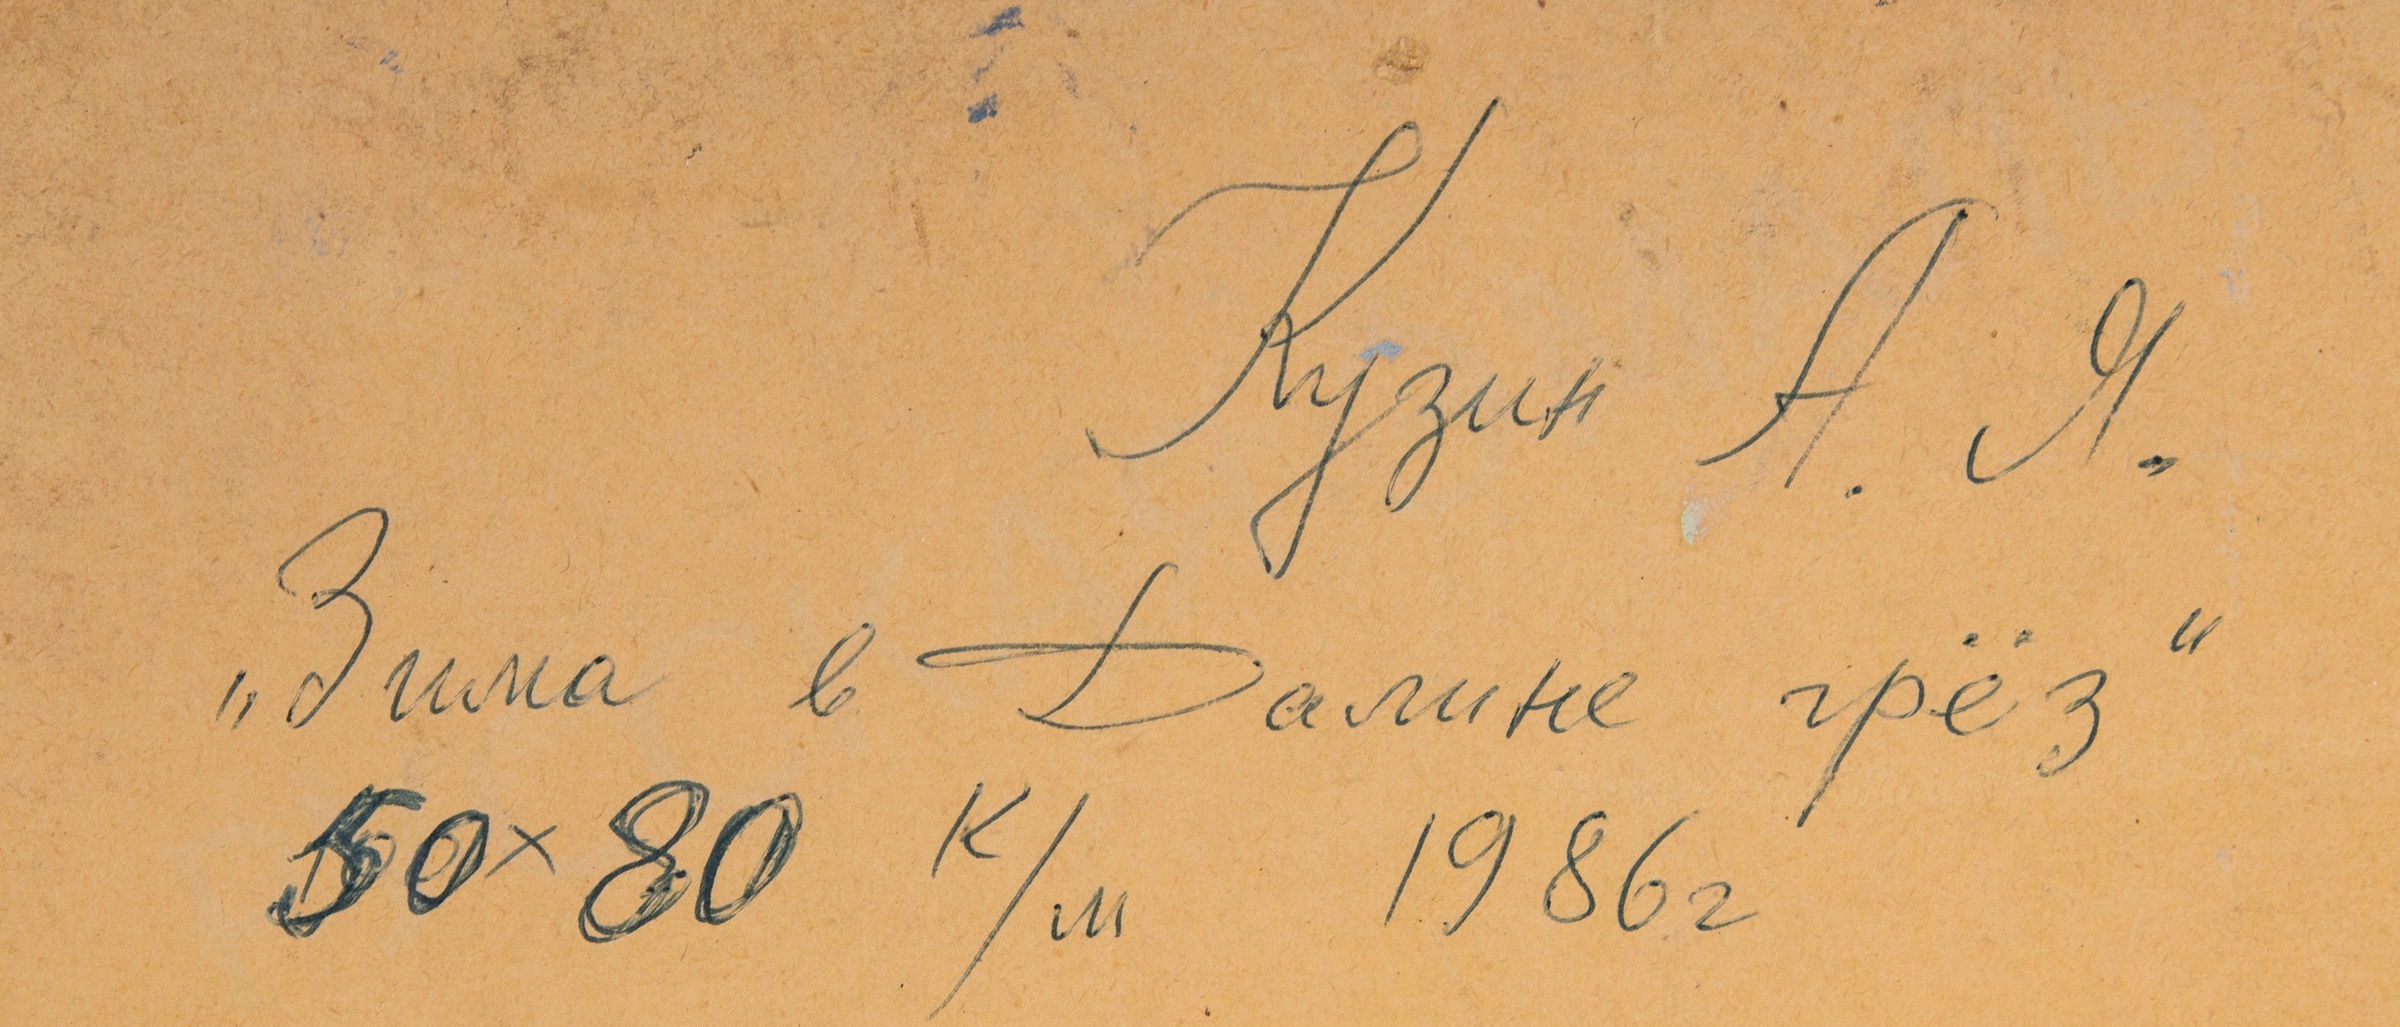 Кузин А. Я.
„Зима в Далине грёз“
50×80 к/м 1986г